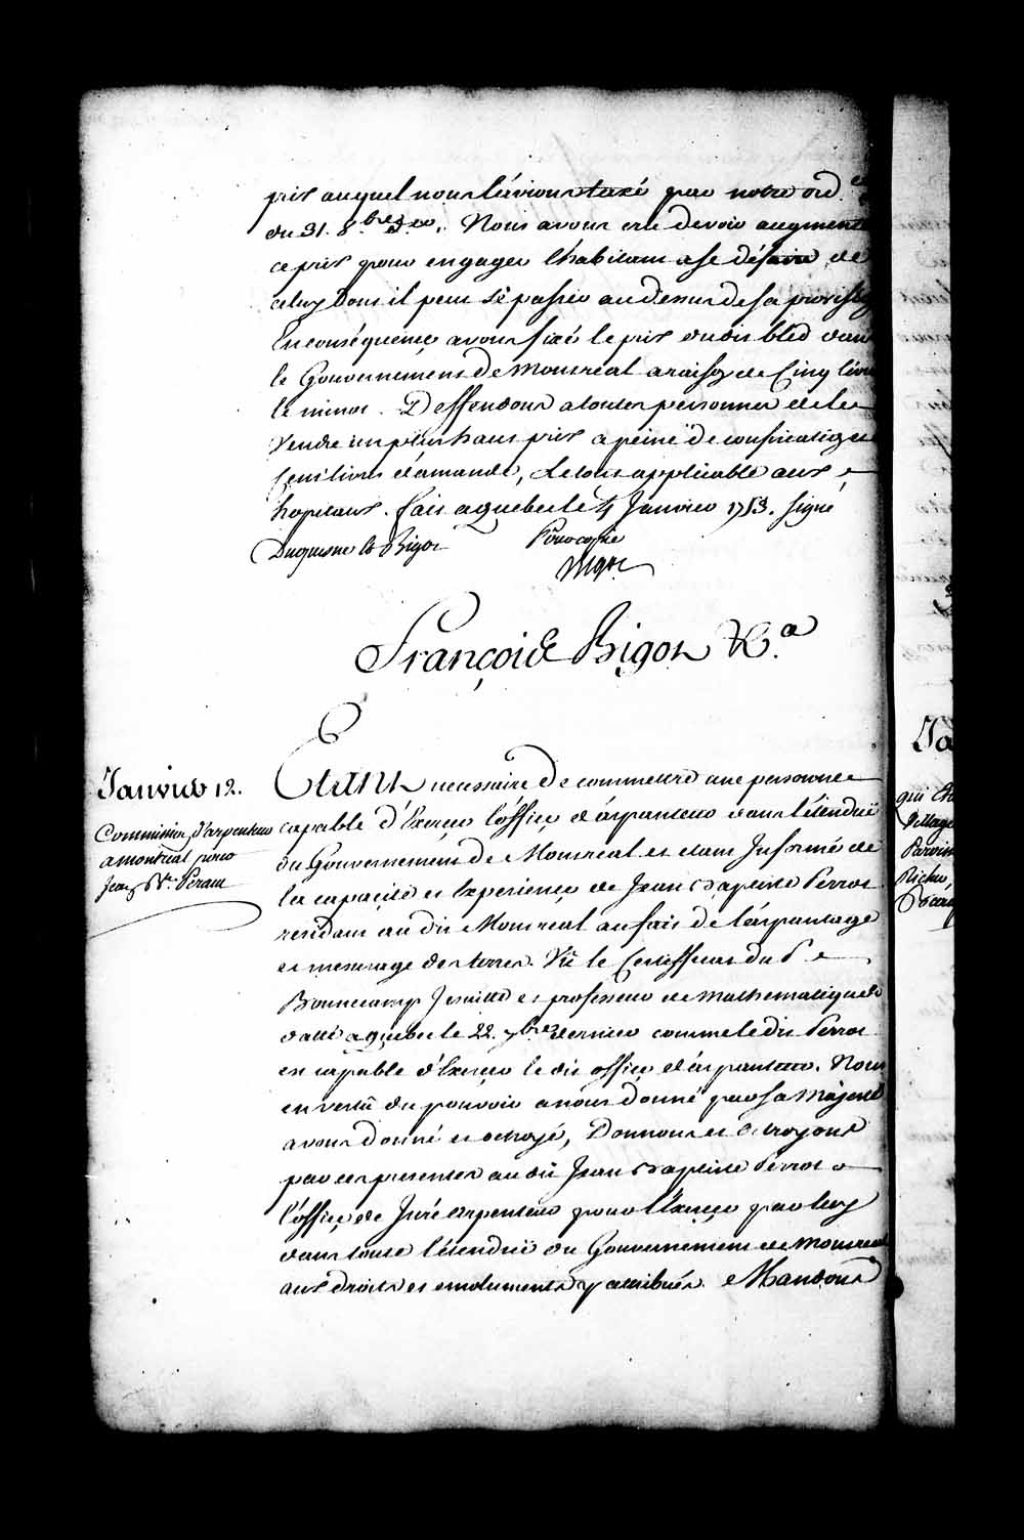 prix auquel nous l'avions taxé par notre ord.ce
du 31. 8.bre d.er. Nous avons cru devoir augmenter
ce prix pour engager l'habitant a se défaire de
celuy dont il peut se passer au dessus de sa provision
En conséquence avons fixé le prix du dit bled dans
le Gouvernement de Montréal a raison de Cinq livres
le minot. Deffendons a toutes personnes de le
vendre un plus haut prix a peine de confiscation et
Cent livres d'amande, Le tout applicable aux
hopitaux. fait a Quebec le 4 Janvier 1753. Signé
Duquesne & Bigot Pour copie
Bigot
François Bigot &.a
Janvier 12.
Commission d'arpenteur
a montréal pour
Jean B.te Perrau
Etant necessaire de commettre une personne
capable d'Exercer l'office d'arpenteur dans l'étenduë
du Gouvernement de Montreal et etant Informé de
la capacité et Experience de Jean Baptiste Perrot
residant au dit Montreal au fait de l'arpantage
et mesurage des terres. Vû le Certifficat du P.
Bonnecamp Jesuitte et professeur de mathematiques
datté a Quebec le 22. 7.bre dernier comme le dit Perrot
est capable d'Exercer le dit office d'arpanteur. Nous
en vertu du pouvoir a nous donné par sa Majesté
avons donné et octroyé, Donnons et Octroyons
par ces presentes au dit Jean Baptiste Perrot
l'office de Juré arpenteur pour l'Exercer par luy
dans toute l'étenduë du Gouvernement de Montreal
aux droits et emoluments y attribués. Mandons
Ja
qui
Village
Paroiss